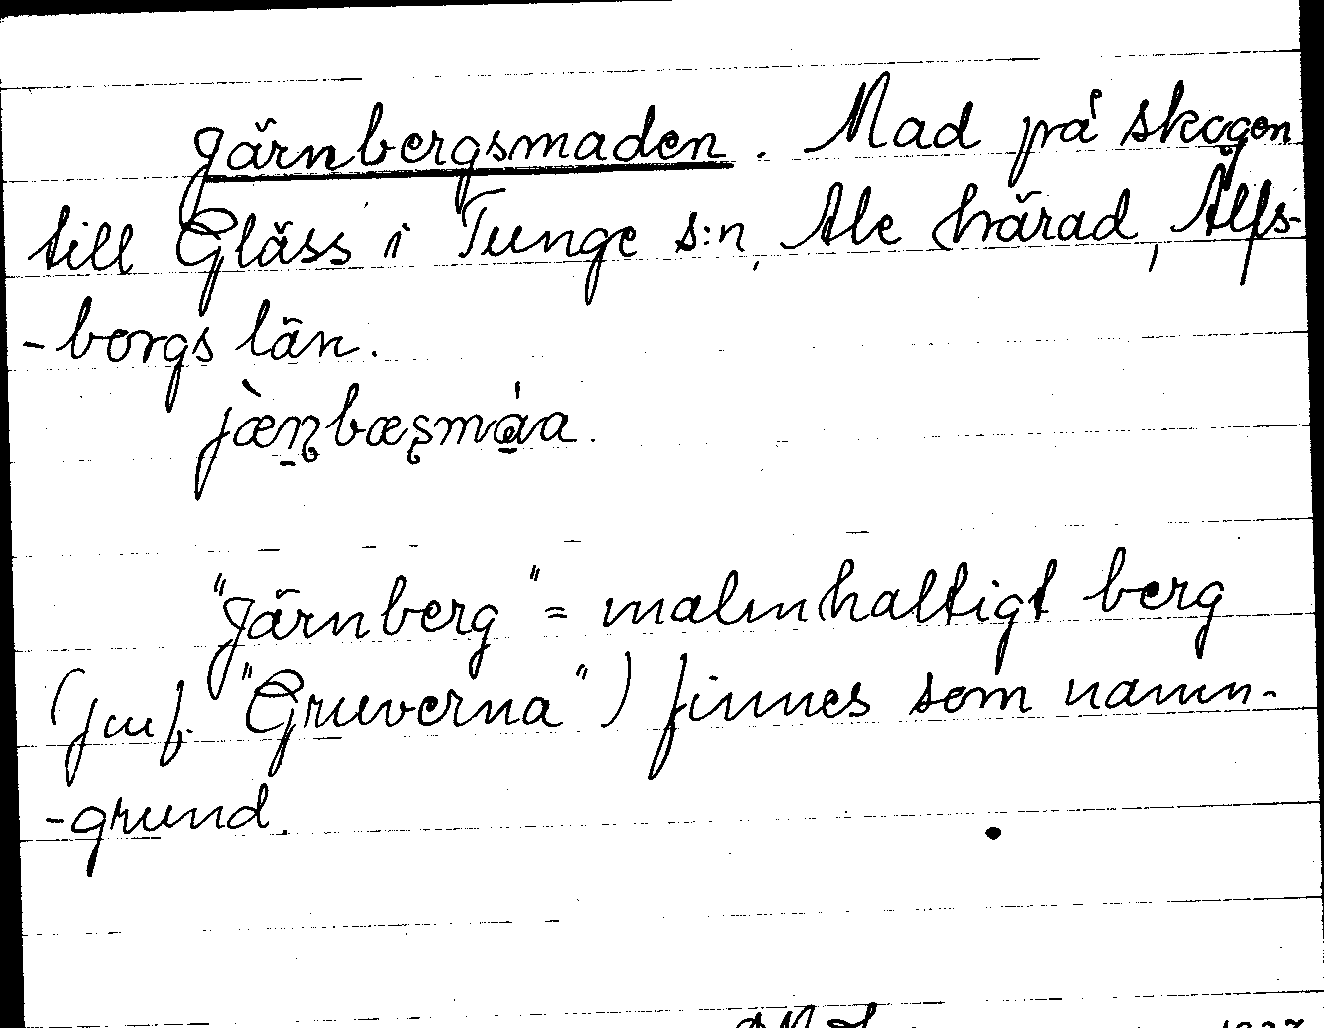 Järnbergsmaden. Mad på skogen
till Gläss i Tunge s:n, Ale härad, Älfs-
-borgs län.
"Järnberg" = malmhaltigt berg
(jmf. "Gruverna") finnes som namn-
-grund.